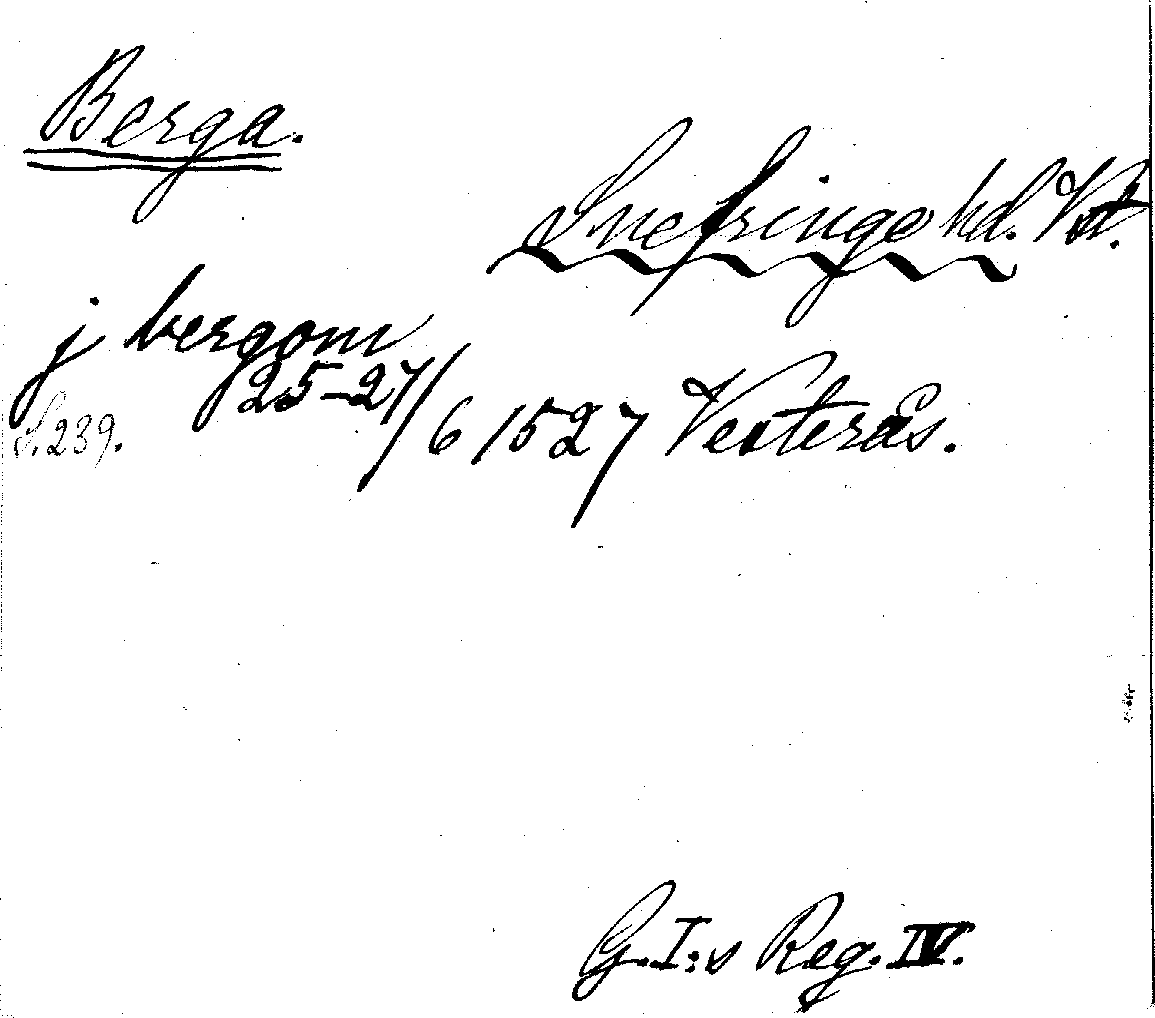 Berga.
Snefringe hd. Vst.
j bergom
25-27/6 1527 Vesterås.
S. 239.
G. I:s Reg. IV.